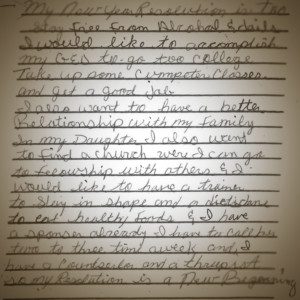 My New Year Resolution is Too
Stay Free From Alcohol & Jails
I would like to accomplish
my G.E.D to go too College
Take up some Cumpoter Classes
and get a good job
I also want to have a better
Relationship with my family
In my Daughter I also want
to find a church were I can go
to fellowship with others & I
would like to have a trainer
to stay in shape and a dictichans
to eat healthy foods & I have
a sponser already I have to call her
two to three time a week and I
have a Countselor and a thrupist
so my Resolution is a New Beginning